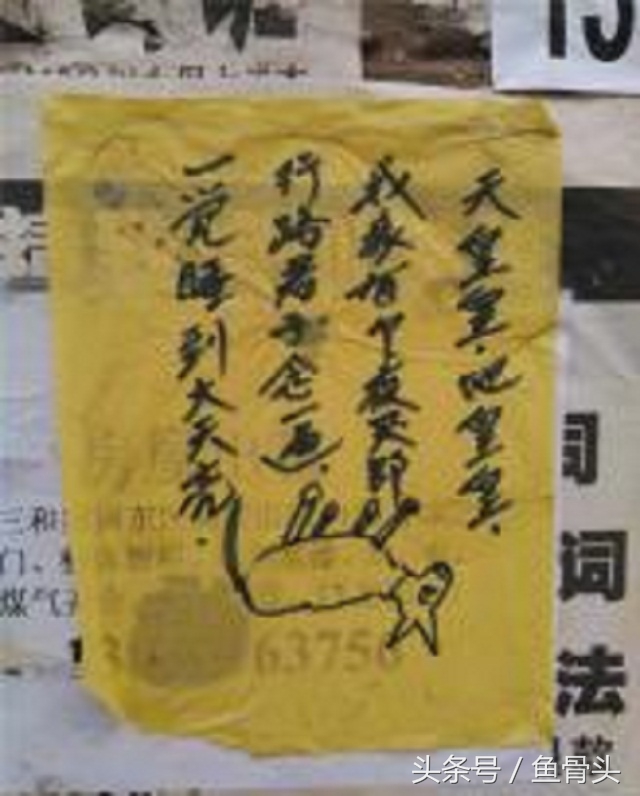 天皇皇.地皇皇.
我家有个夜哭郎
行路君子念一遍.
一觉睡到大天亮.
三和
门、
煤气
63756
词
法
头条号 / 鱼骨头